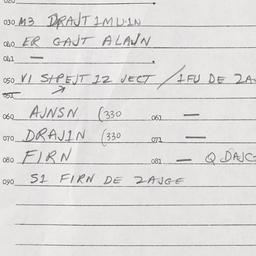 030 M3 DRAJT IMUIN
040 ER GAJT ALAJN
041 —
050 VI STPEJT 12 VECT / IFU DE ZA
051
060 AJNSN (330 061 —
070 DRAJIN (330 071 —
080 FIRN 081 — Q DAJC
090 S1 FIRN DE ZAJGE